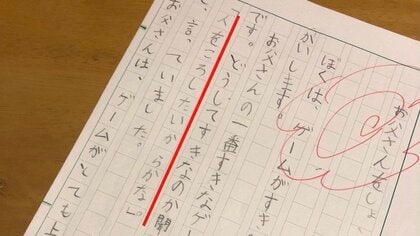 お父さんをしょ
ぼくは、ゲームがすき
かいします。
お父さんの一番すきなゲー
です。
どうしてすきなのか聞
「人をころしたいからかな」
と、言っていました。
お父さんは、ゲームがとても上